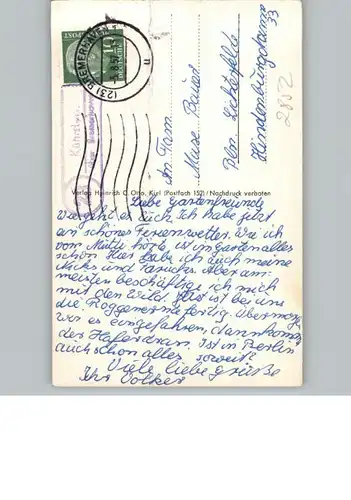 BREMERHAVEN
(23)
POST
10
An Fam.
Max Bauer
Bln. Lichterfelde
Hindenburgdamm
33
2852
Verlag Heinrich C. Otto, Kiel (Postfach 152) / Nachdruck verboten
Liebe Gartenfreunde
Wie geht es Euch. Ich habe jetzt
ein schönes Ferienwetter. Wie ich
von Mutti hörte, ist im Garten alles
schön. Hier habe ich auch meine
und Aber am
meisten beschäftige ich mich
mit dem Wild. ist bei uns
die Roggenernte fertig. Übermorgen
wir es eingefahren, dann kommt
der Hafer dran. Ist in Berlin
auch schon alles soweit?
Viele liebe Grüße
Ihr Volker